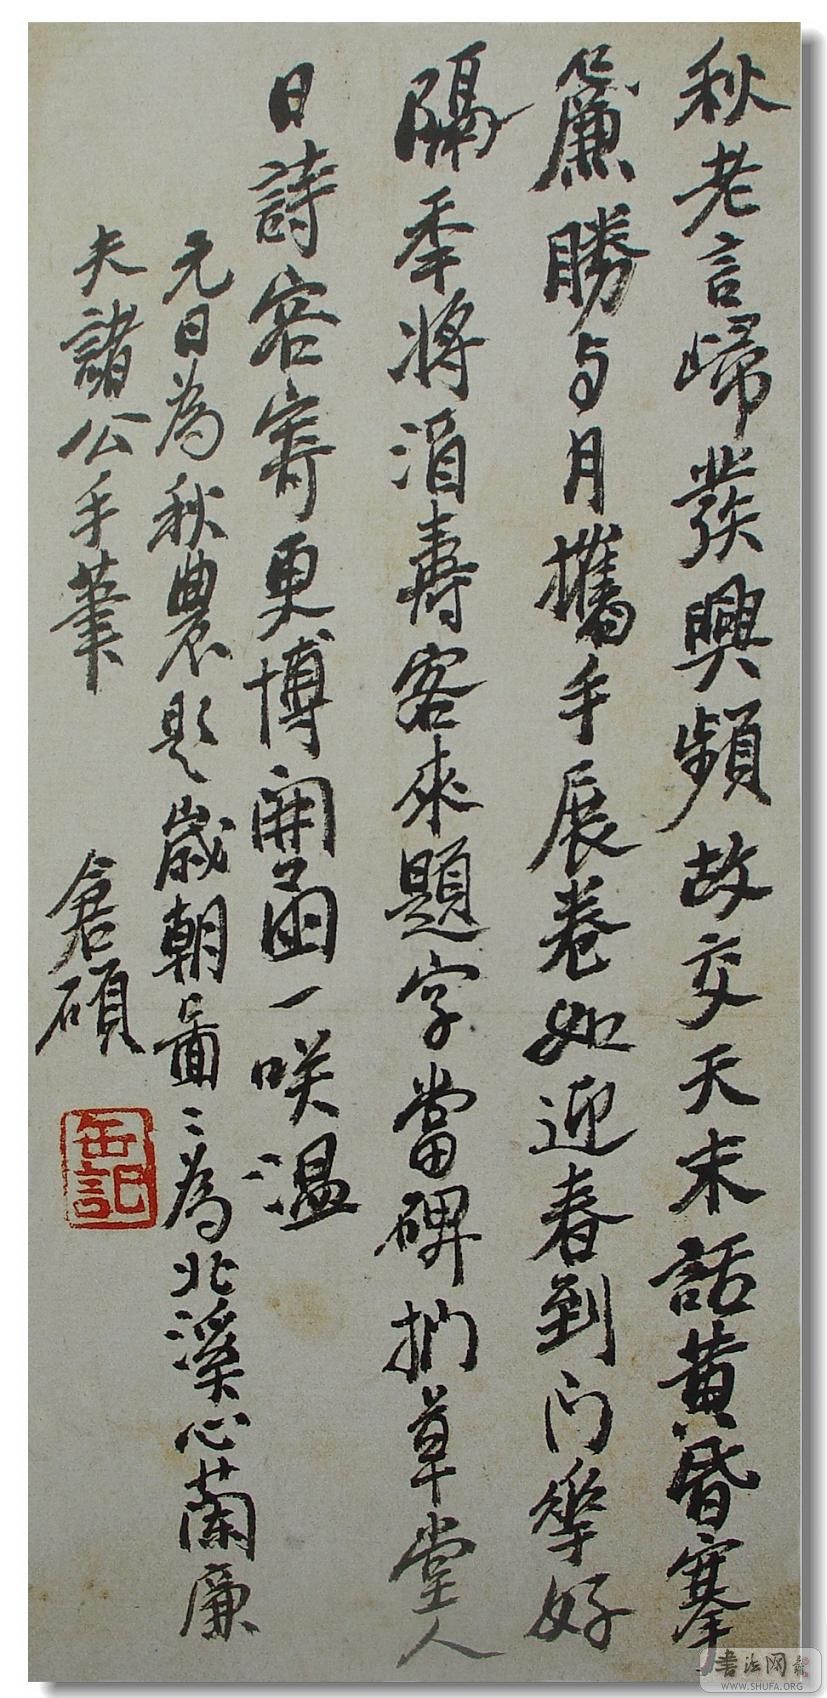 秋老言歸發興頻故交天末話黃昏搴
簾勝与月攜手展卷如迎春到门華好
隔年將湏壽客來題字當碑捫草堂人
日詩容寄更博開函一咲溫
元日為秋農題歲朝圖〻為北溪心蘭廉
夫諸公手筆
倉碩
缶記
書法网
WWW.SHUFA.ORG